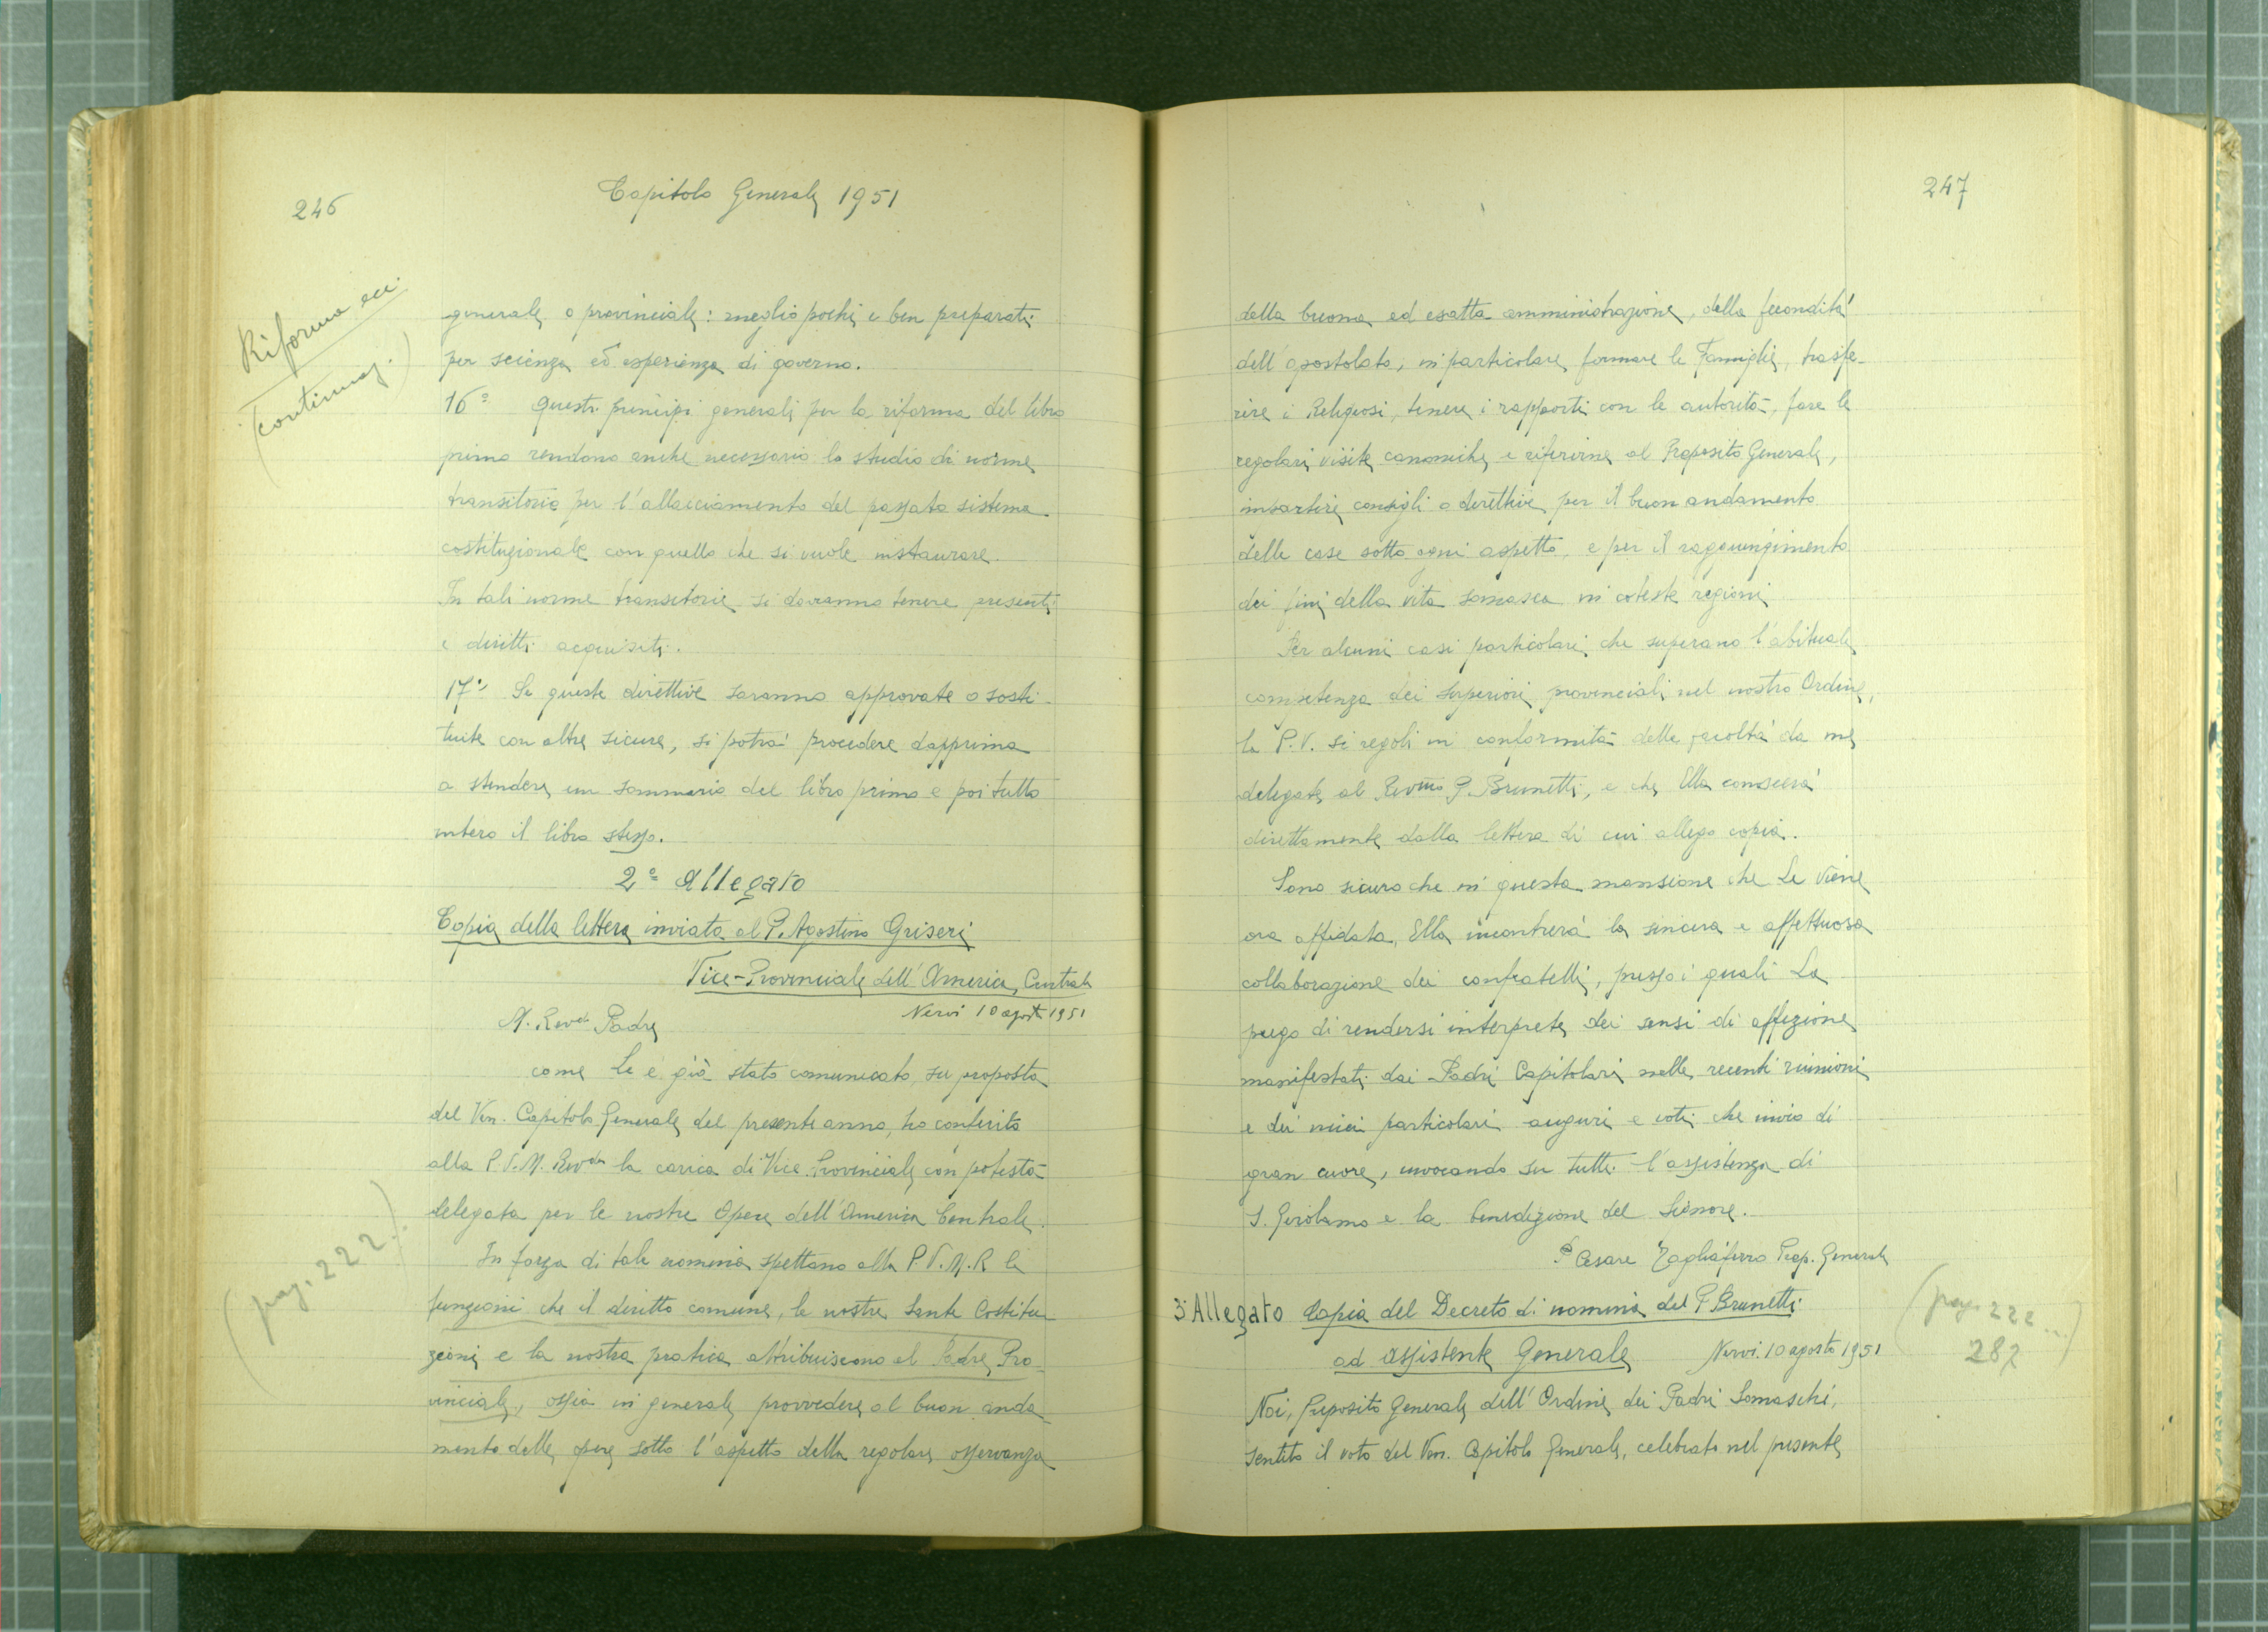 246
Capitolo Generale 1951
Riforma ecc.
(continuaz.)
generale o provinciale: meglio pochi e ben preparati
per scienza ed esperienza di governo.
16º Questi principi generali per la riforma del libro
primo rendono anche necessario lo studio di norme
transitorie per l'allacciamento del passato sistema
costituzionale con quello che si vuole instaurare.
In tali norme transitorie si dovranno tenere presenti
i diritti acquisiti.
17º Se queste direttive saranno approvate o sosti-
tuite con altre sicure, si potrà procedere dapprima
a stendere un sommario del libro primo e poi tutto
intero il libro stesso.
2º Allegato
Copia della lettera inviata al P. Agostino Griseri
Vice-Provinciale dell'America Centrale
Nervi 10 agosto 1951
M. Revdo Padre
come Le è già stato comunicato, su proposta
del Ven. Capitolo Generale del presente anno, ho conferito
alla P.V.M. Revda la carica di Vice Provinciale con potestà
delegata per le nostre Opere dell'America Centrale.
In forza di tale nomina spettano alla P.V.M.R le
funzioni che il diritto comune, le nostre Sante Costitu-
zioni e la nostra pratica attribuiscono al Padre Pro-
vinciale, ossia in generale provvedere al buon anda-
mento delle opere sotto l'aspetto della regolare osservanza
(pag. 222.)
247
della buona ed esatta amministrazione, della fecondità
dell'apostolato; in particolare formare le Famiglie, trasfe-
rire i Religiosi, tenere i rapporti con le autorità, fare le
regolari visite canoniche e riferirne al Preposito Generale,
impartire consigli o direttive per il buon andamento
delle case sotto ogni aspetto, e per il raggiungimento
dei fini della vita somasca in coteste regioni
Per alcuni casi particolari che superano l'abituale
competenza dei Superiori provinciali nel nostro Ordine,
la P.V. si regoli in conformità delle facoltà da me
delegate al Revmo P. Brunetti, e che Ella conoscerà
direttamente dalla lettera di cui allego copia.
Sono sicuro che in questa mansione che Le viene
ora affidata, Ella incontrerà la sincera e affettuosa
collaborazione dei confratelli, presso i quali La
prego di rendersi interprete dei sensi di affezione
manifestati dai Padri Capitolari nelle recenti riunioni
e dei miei particolari auguri e voti che invio di
gran cuore, invocando su tutti l'assistenza di
S. Girolamo e la benedizione del Signore.
P Cesare Tagliaferro Prep. Generale
3º Allegato Copia del Decreto di nomina del P Brunetti
ad Assistente Generale Nervi. 10 agosto 1951
(pag. 222...)
287
Noi, Preposito Generale dell'Ordine dei Padri Somaschi,
sentito il voto del Ven. Capitolo Generale, celebrato nel presente